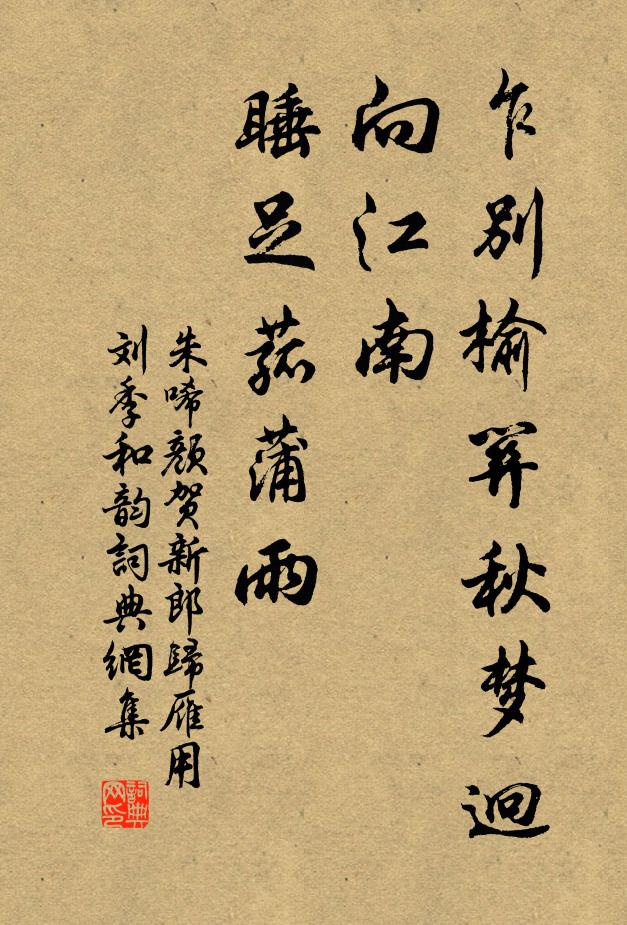 乍别榆関秋梦迥
向江南
睡足菰蒲雨
朱唏颜贺新郎歸雁用
刘季和韵詞典網集
詞典网印